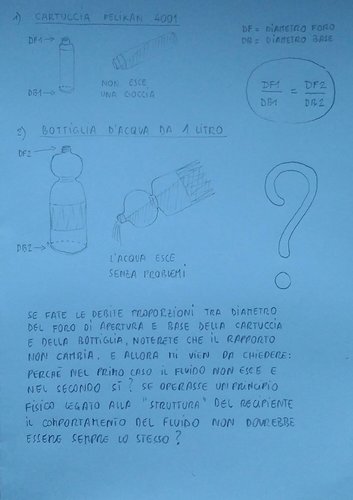 1) CARTUCCIA PELIKAN 4001
DF = DIAMETRO FORO
DB = DIAMETRO BASE
DF1 →
DB1 →
NON ESCE
UNA GOCCIA
DF1 = DF2
DB1 DB2
2) BOTTIGLIA D'ACQUA DA 1 LITRO
DF2 →
DB2 →
L'ACQUA ESCE
SENZA PROBLEMI
?
SE FATE LE DEBITE PROPORZIONI TRA DIAMETRO
DEL FORO DI APERTURA E BASE DELLA CARTUCCIA
E DELLA BOTTIGLIA, NOTERETE CHE IL RAPPORTO
NON CAMBIA. E ALLORA MI VIEN DA CHIEDERE:
PERCHÉ NEL PRIMO CASO IL FLUIDO NON ESCE E
NEL SECONDO SÌ? SE OPERASSE UN PRINCIPIO
FISICO LEGATO ALLA "STRUTTURA" DEL RECIPIENTE
IL COMPORTAMENTO DEL FLUIDO NON DOVREBBE
ESSERE SEMPRE LO STESSO?